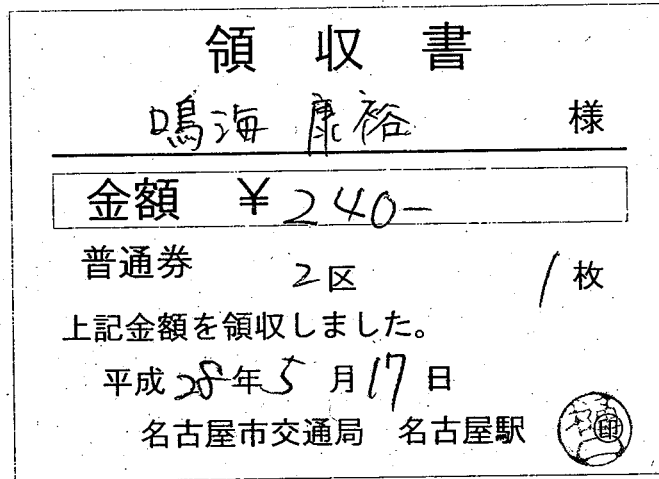 領収書
鳴海 康裕 様
金額 ¥240-
普通券 2区 1枚
上記金額を領収しました。
平成28年5月17日
名古屋市交通局 名古屋駅
印